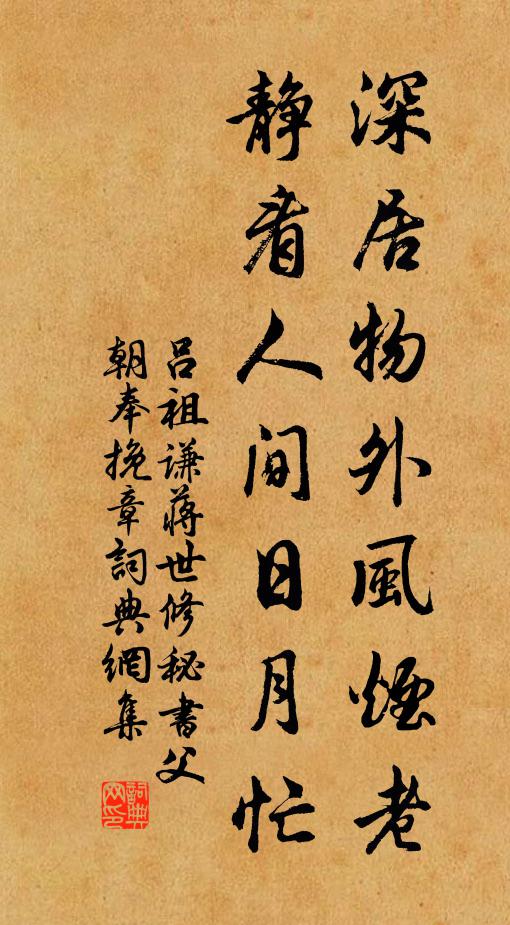 深居物外風煙老
静看人间日月忙
吕祖谦蒋世修秘書父
朝奉挽章詞典網集
詞典网印